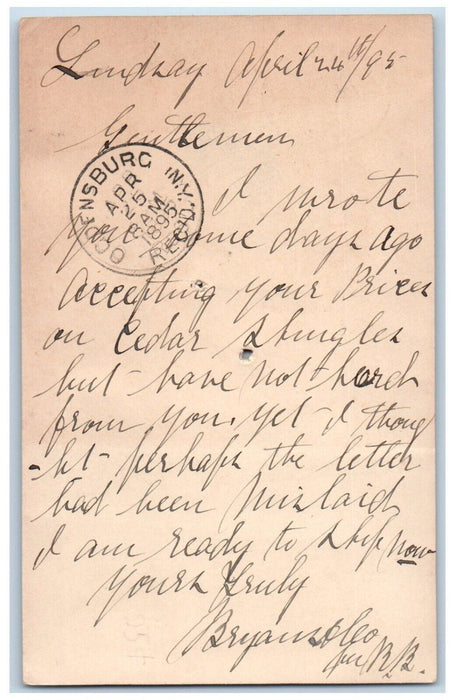 Lindsay April 24th/95
Gentlemen
OGDENSBURG N.Y.
APR
25
8 AM
1895
REC'D.
I wrote
you some days ago
accepting your Prices
on Cedar Shingles
but have not herd
from you. yet I thoug
-ht- perhaps the letter
had been Mislaid
I am ready to ship now
Yours Truly
Bryans & Co
per B.B.